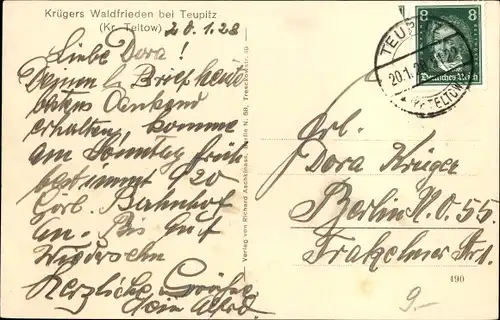 Krügers Waldfrieden bei Teupitz
(Kr. Teltow)
20.1.28
Liebe Dora!
Deinen l. Brief heut
dankend
erhalten, komme
am Sonntag früh
920
Görl. Bahnhof
an. Bis auf
Wiedersehn
Herzliche Grüße
dein Alfred
Verlag von Richard Aschkinass, Berlin N. 58, Tresckowstr. 10
8 8
Deutsches Reich
TEUPITZ
20.1.28
(KR. TELTOW)
Frl.
Dora Krüger
Berlin N.O. 55.
Str. 1.
490
9.-